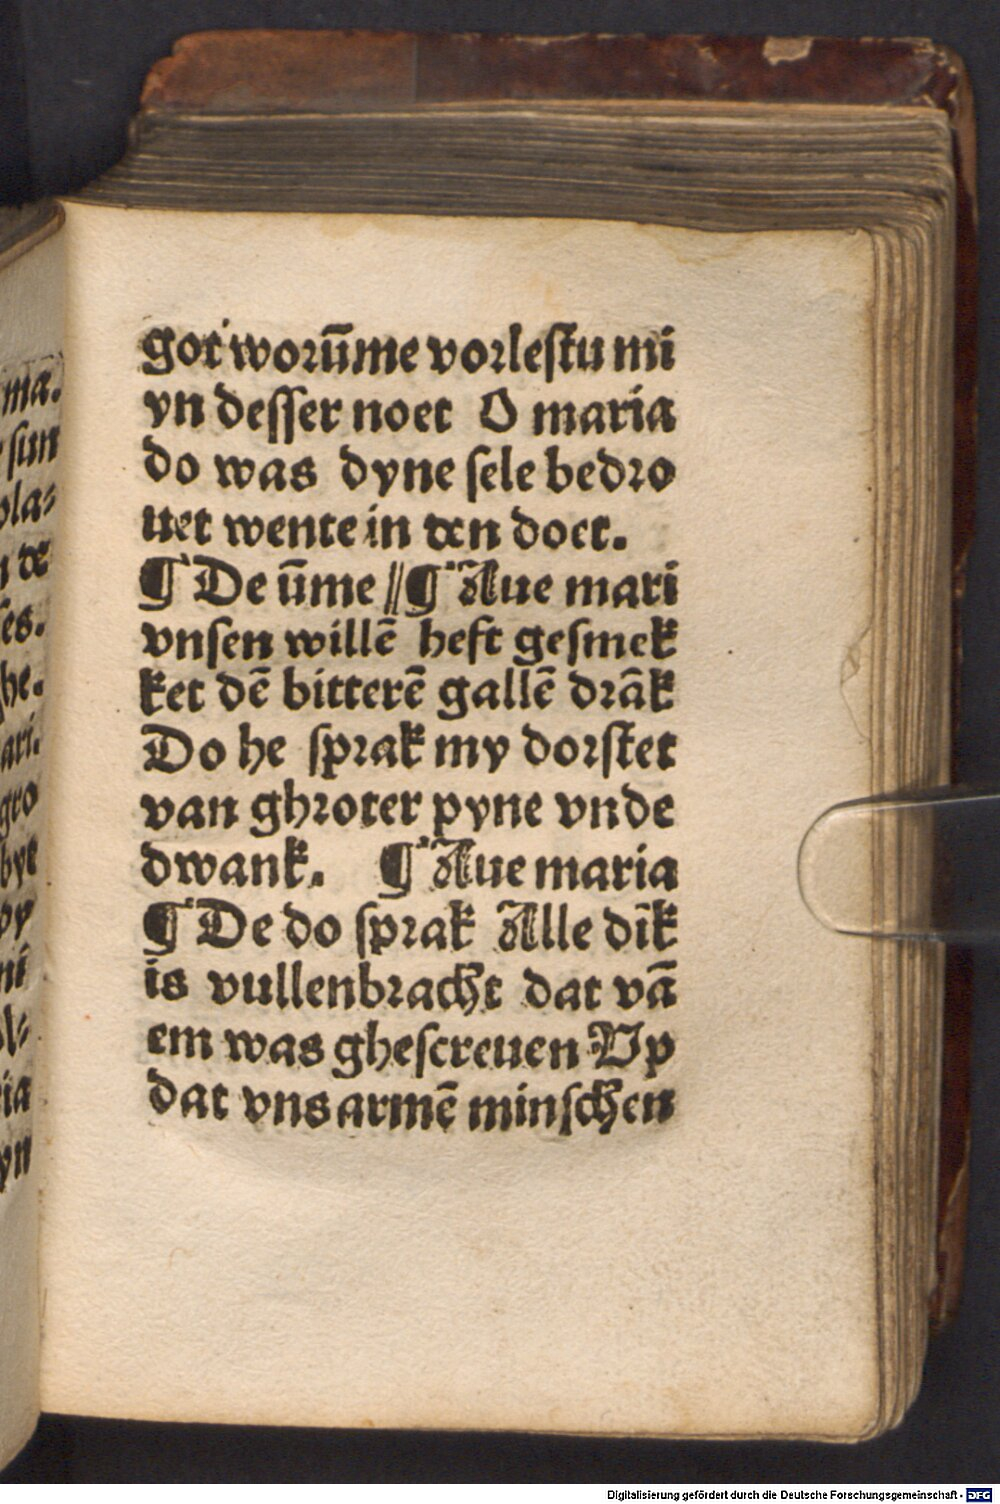 ma.
sun
ola-
n de
ses.
he.
ari.
gro
bye
py
nī
ol-
ria
yn
got worūme vorlestu mi
yn desser noet O maria
do was dyne sele bedro
uet wente in den doet.
¶ De ūme ‖ ¶ Aue mari
vnsen willē heft gesmek
ket dē bitterē gallē drāk
Do he sprak my dorstet
van ghroter pyne vnde
dwank. ¶ Aue maria
¶ De do sprak Alle dīk
is vullenbracht dat vā
em was ghescreuen Up
dat vns armē minschen
Digitalisierung gefördert durch die Deutsche Forschungsgemeinschaft - DFG